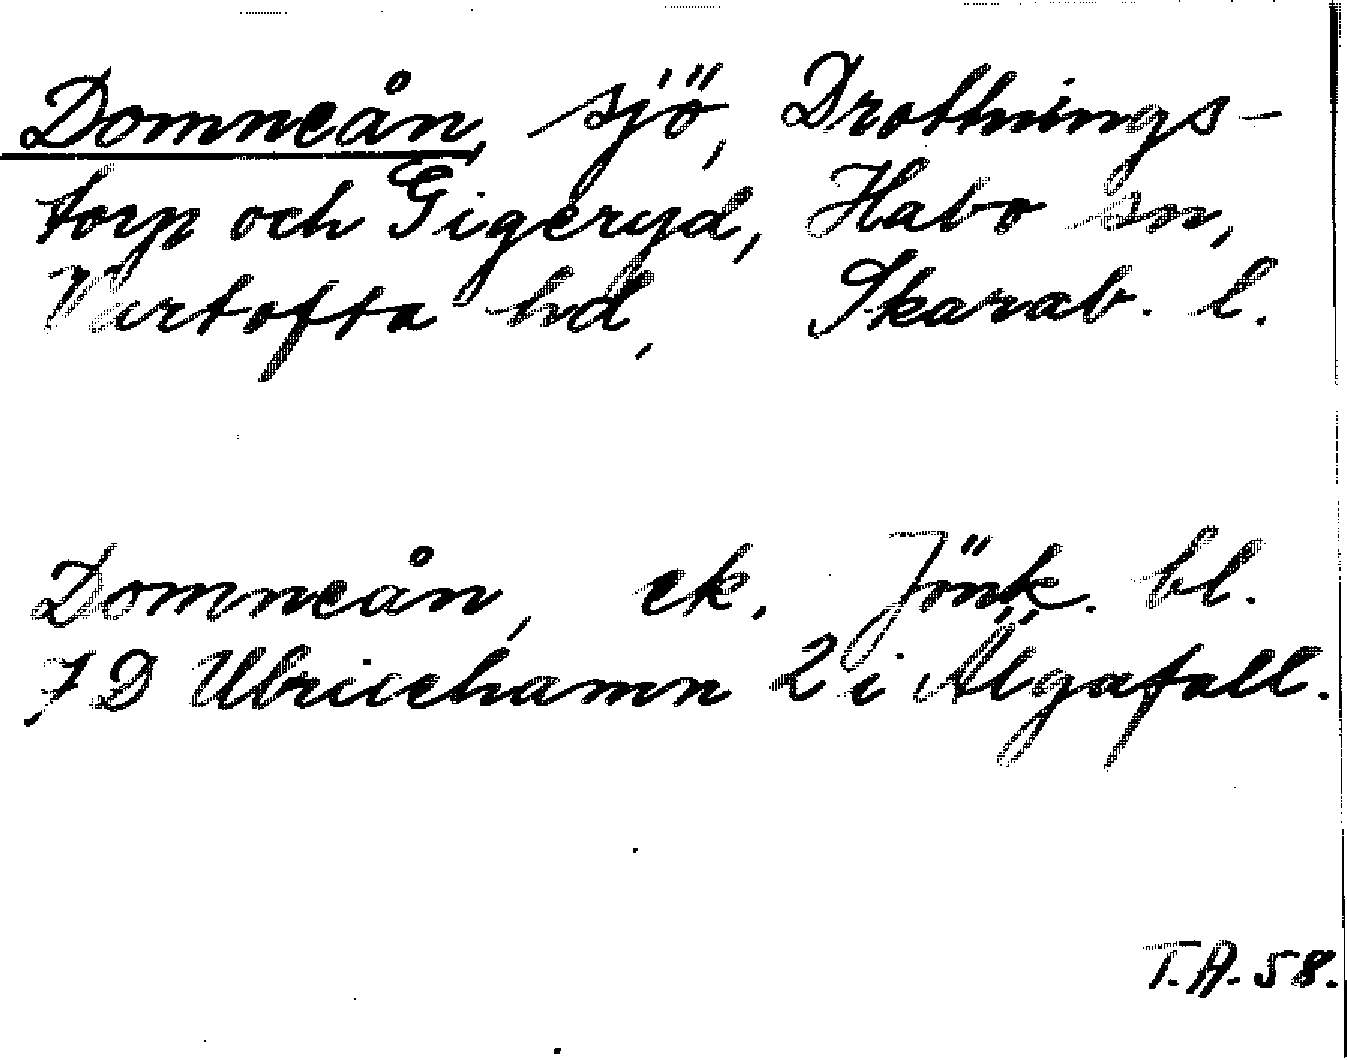 Domneån, sjö, Drottnings-
torp och Gigeryd, Habo sn,
Vartofta hd, Skarab. l.
Domneån, ek. Jönk. bl.
7D Ulricehamn 2 i Älgafall.
T.A. 58.